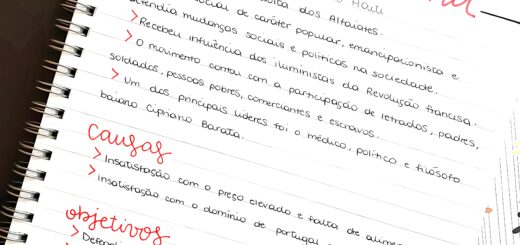 dos Alfaiates.
social de caráter popular, emancipacionista e
defendia mudanças sociais e políticas na sociedade.
> Recebeu influência dos iluministas da Revolução francesa.
> O movimento contou com a participação de letrados, padres,
soldados, pessoas pobres, comerciantes e escravos.
> Um dos principais líderes foi o médico, político e filósofo
baiano Cipriano Barata.
causas
> Insatisfação com o preço elevado e falta de
> Insatisfação com o domínio de portugal
objetivos